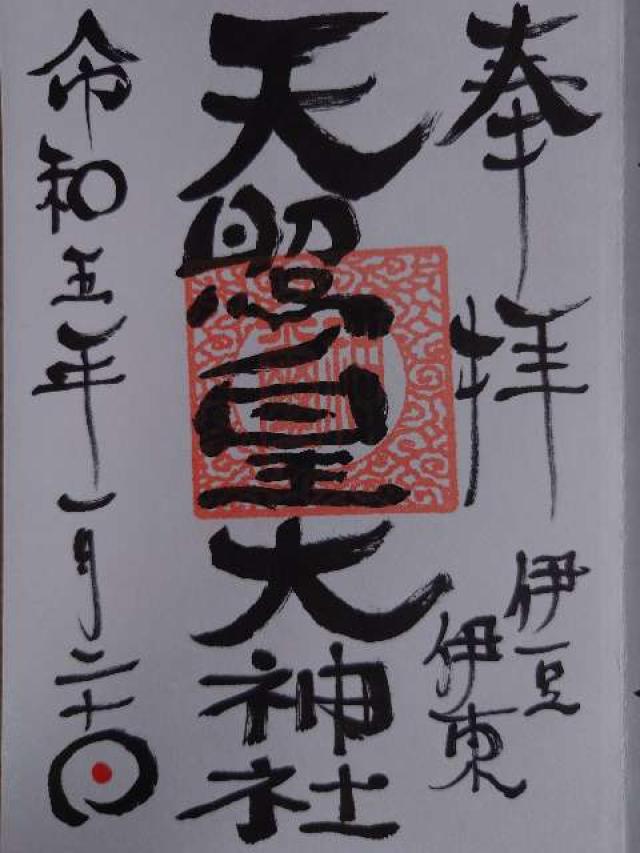 奉拝
伊豆
伊東
天照皇大神社
令和五年一月二十日